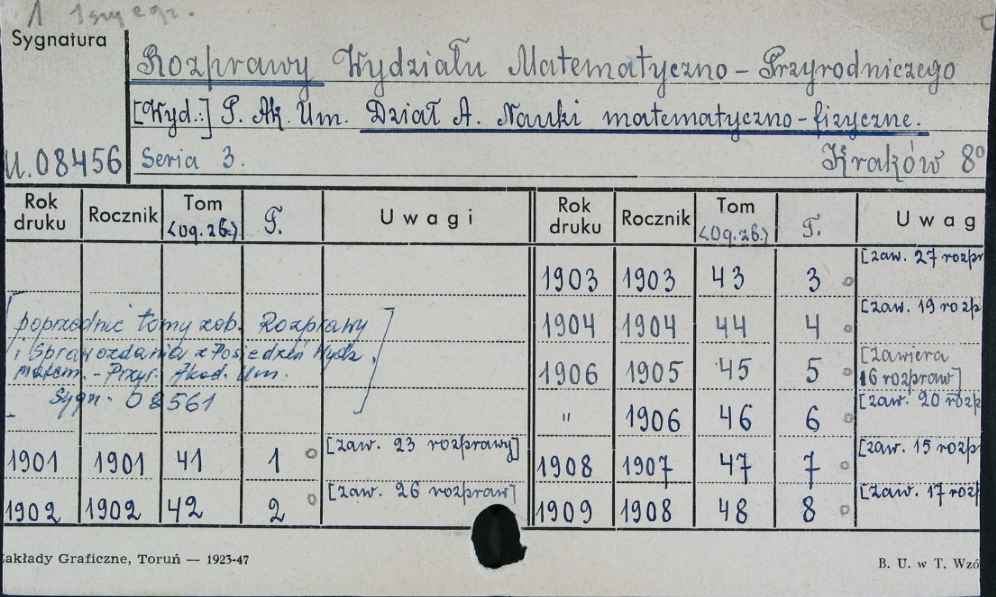 1
Sygnatura
Rozprawy Wydziału Matematyczno-Przyrodniczego
[Wyd.:] P. Ak. Um. Dział A. Nauki matematyczno-fizyczne.
U.08456 Seria 3. Kraków 8°
Rok druku Rocznik Tom (og.zb.) T. Uwagi Rok druku Rocznik Tom (og.zb.) T. Uwag
1903 1903 43 3 [zaw. 27 rozpr
poprzednie tomy zob. Rozprawy
i Sprawozdania z Posiedzeń Wydz.
matem.-Przyr. Akad. Um.
Sygn. 08561
1904 1904 44 4 [zaw. 19 rozp
1906 1905 45 5 [zawiera 16 rozpraw]
" 1906 46 6 [zaw. 20 rozp
1901 1901 41 1 [zaw. 23 rozprawy] 1908 1907 47 7 [zaw. 15 rozp
1902 1902 42 2 [zaw. 26 rozpraw] 1909 1908 48 8 [zaw. 17 rozp
akłady Graficzne, Toruń — 1923-47 B. U. w T. Wzó